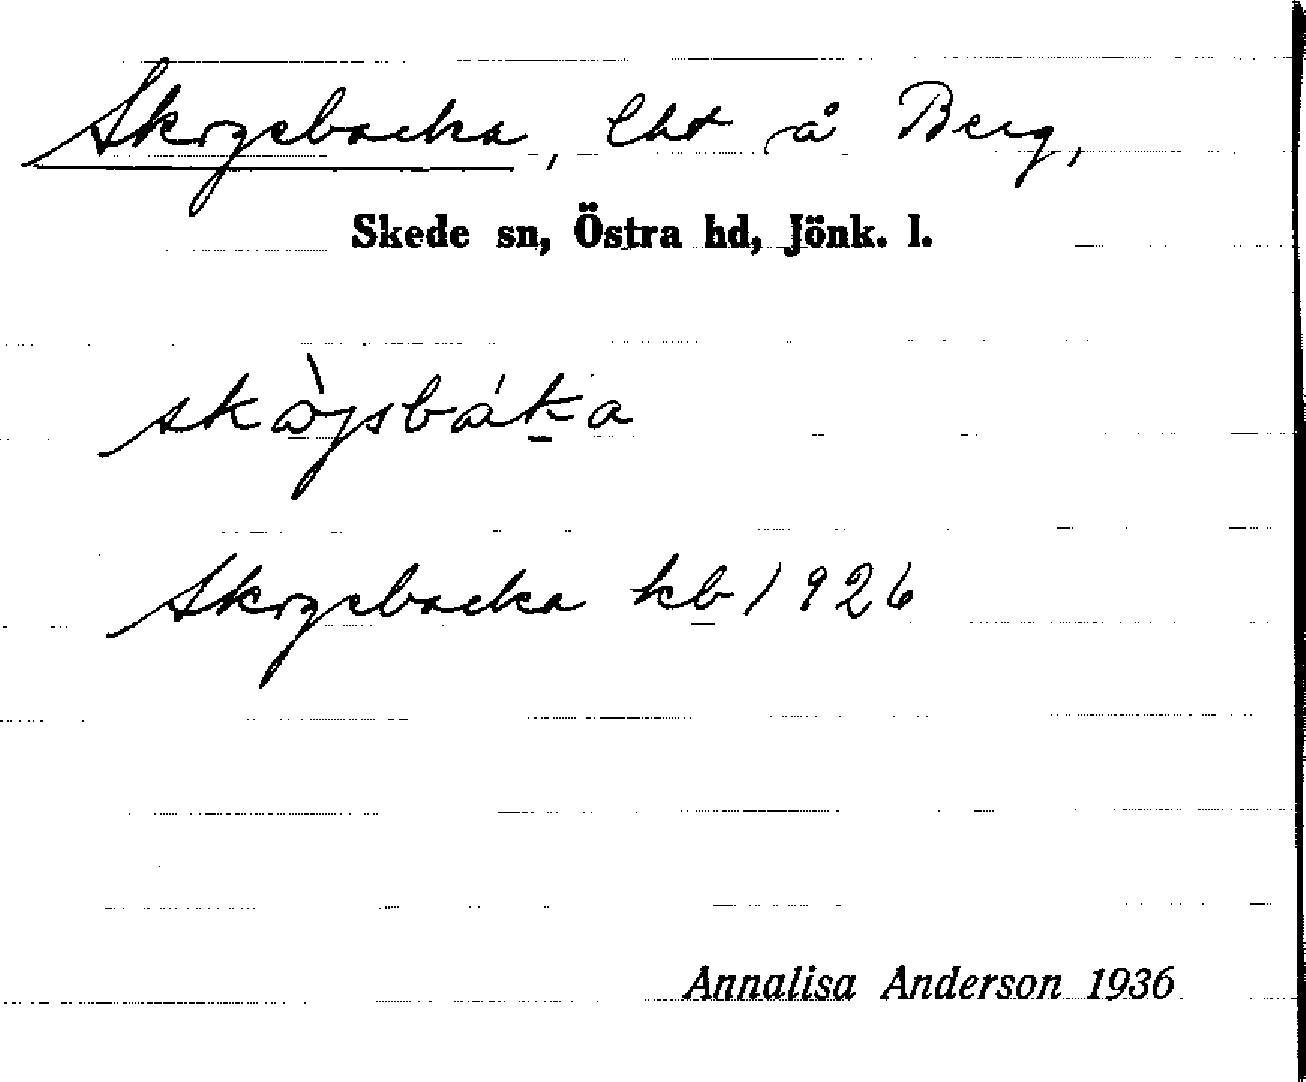 Skogsbacka, lht å Berg,
Skede sn, Östra hd, Jönk. l.
skògsbák̲a
Skogsbacka kb 1926
Annalisa Anderson 1936